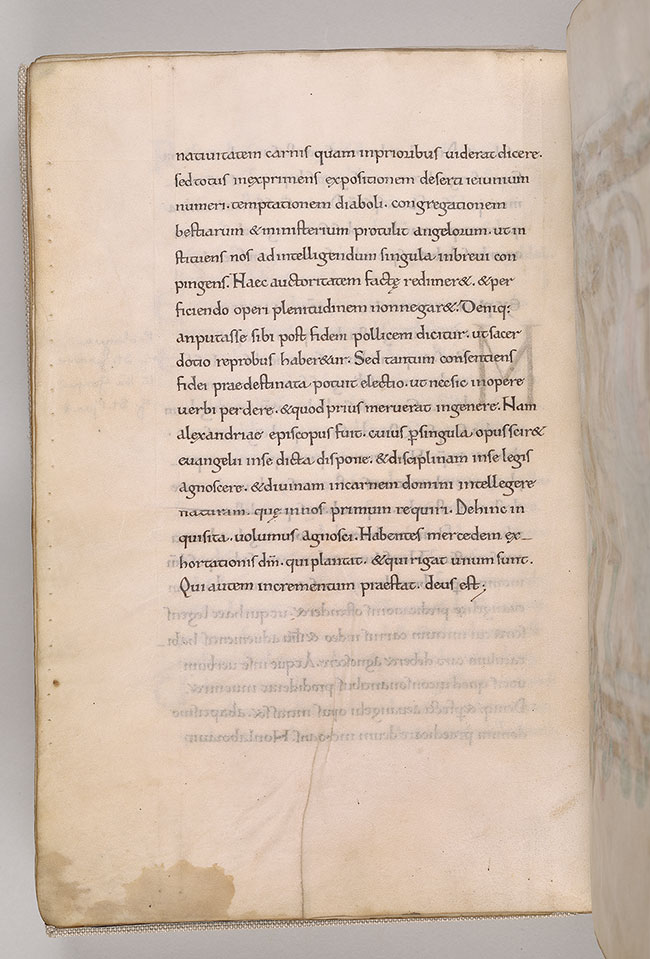 natiuitatem carnis quam inprioribus uiderat dicere.
sed totus inexprimens expositionem deserti ieiunium
numeri. temptationem diaboli. congregationem
bestiarum & ministerium protulit angelorum. ut in
stituens nos ad intelligendum singula inbreui con
pingens. Haec auctoritatem factę redimer&. & per
ficiendo operi plenitudinem nonnegar&. Deniq;
anputasse sibi post fidem pollicem dicitur. ut sacer
dotio reprobus haber&ur. Sed tantum consentiens
fidei praedestinata potuit electio. ut necsic inopere
uerbi perdere. & quod prius meruerat ingenere. Nam
alexandriae episcopus fuit. cuius ꝑsingula opus scir&
euangelii inse dicta dispone. & disciplinam inse legis
agnoscere. & diuinam incarnem domini intellegere
naturam. quę in nos primum requiri. Dehinc in
quisita. uolumus agnosci. Habentes mercedem ex_
hortationis dm̄. qui plantat. & qui rigat unum sunt.
Qui autem incrementum praestat. deus est;